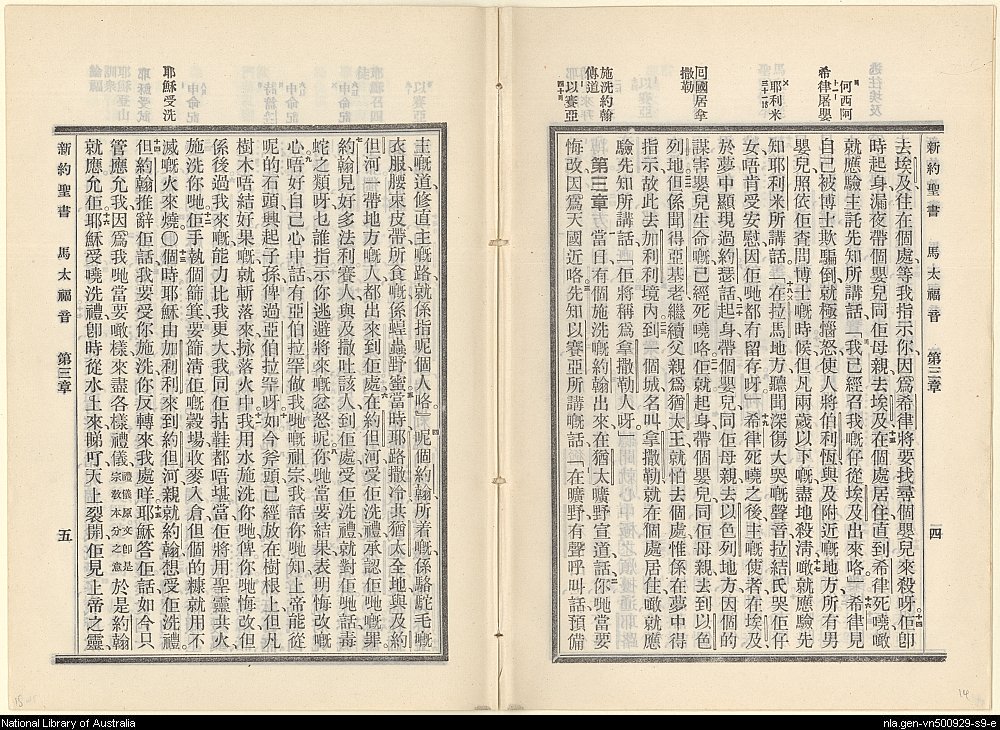 新約聖書 馬太福音 第三章 四
何西阿
十一
希律屠嬰
耶利米
三十一
回國居拿
撒勒
施洗約翰
傳道
以賽亞
四十
去埃及住在個處等我指示你因爲希律將要找尋個嬰兒來殺呀佢卽
時起身漏夜帶個嬰兒同佢母親去埃及在個處居住直到希律死嘵噉
就應驗主託先知所講話「我已經召我嘅仔從埃及出來咯」希律見
自己被博士欺騙倒就極惱怒使人將伯利恆與及附近嘅地方所有男
嬰兒照依佢查問博士嘅時候但凡兩歲以下嘅盡地殺淸噉就應驗先
知耶利米所講話「在拉馬地方聽聞深傷大哭嘅聲音拉結氏哭佢仔
女唔肯受安慰因佢哋都冇留存呀」希律死嘵之後主嘅使者在埃及
於夢中顯現過約瑟話起身帶個嬰兒同佢母親去以色列地方因個的
謀害嬰兒生命嘅已經死嘵咯佢就起身帶個嬰兒同佢母親去到以色
列地但係聞得亞基老繼續父親爲猶太王就怕去個處惟係在夢中得
指示故此去加利利境內到一個城名叫拿撒勒就在個處居住噉就應
驗先知所講話「佢將稱爲拿撒勒人呀」
第三章 當日有個施洗嘅約翰出來在猶太曠野宣道話你哋當要
悔改因爲天國近咯先知以賽亞所講嘅話「在曠野有聲呼叫話預備
耶穌受洗
主嘅道修直主嘅路就係指呢個人咯」呢個約翰所着嘅係駱駝毛嘅
衣服腰束皮帶所食嘅係蝗蟲野蜜當時耶路撒冷共猶太全地與及約
但河一帶地方嘅人都出來到佢處在約但河受佢洗禮承認佢哋嘅罪
約翰見好多法利賽人與及撒吐該人到佢處受佢洗禮就對佢哋話毒
蛇之類呀乜誰指示你逃避將來嘅忿怒呢你哋當要結果表明悔改嘅
心唔好自己心中話有亞伯拉罕做我哋嘅祖宗我話你哋知上帝能從
呢的石頭興起子孫俾過亞伯拉罕呀如今斧頭已經放在樹根上但凡
樹木唔結好果嘅就斬落來掠落火中我用水施洗你哋俾你哋悔改但
係後過我來嘅能力比我更大我同佢拈鞋都唔堪當佢將用聖靈共火
施洗你哋佢手執個篩箕要篩淸佢嘅穀場收麥入倉但個的糠就用不
滅嘅火來燒〇個時耶穌由加利利來到約但河親就約翰想受佢洗禮
但約翰推辭佢話我要受你施洗你反轉來我處咩耶穌答佢話如今只
管應允我因爲我哋當要噉樣來盡各樣禮儀 禮儀原文卽是宗敎本分之意 於是約翰
就應允佢耶穌受嘵洗禮卽時從水上來睇吖天上裂開佢見上帝之靈
新約聖書 馬太福音 第三章 五
15
14
National Library of Australia
nla.gen-vn500929-s9-e